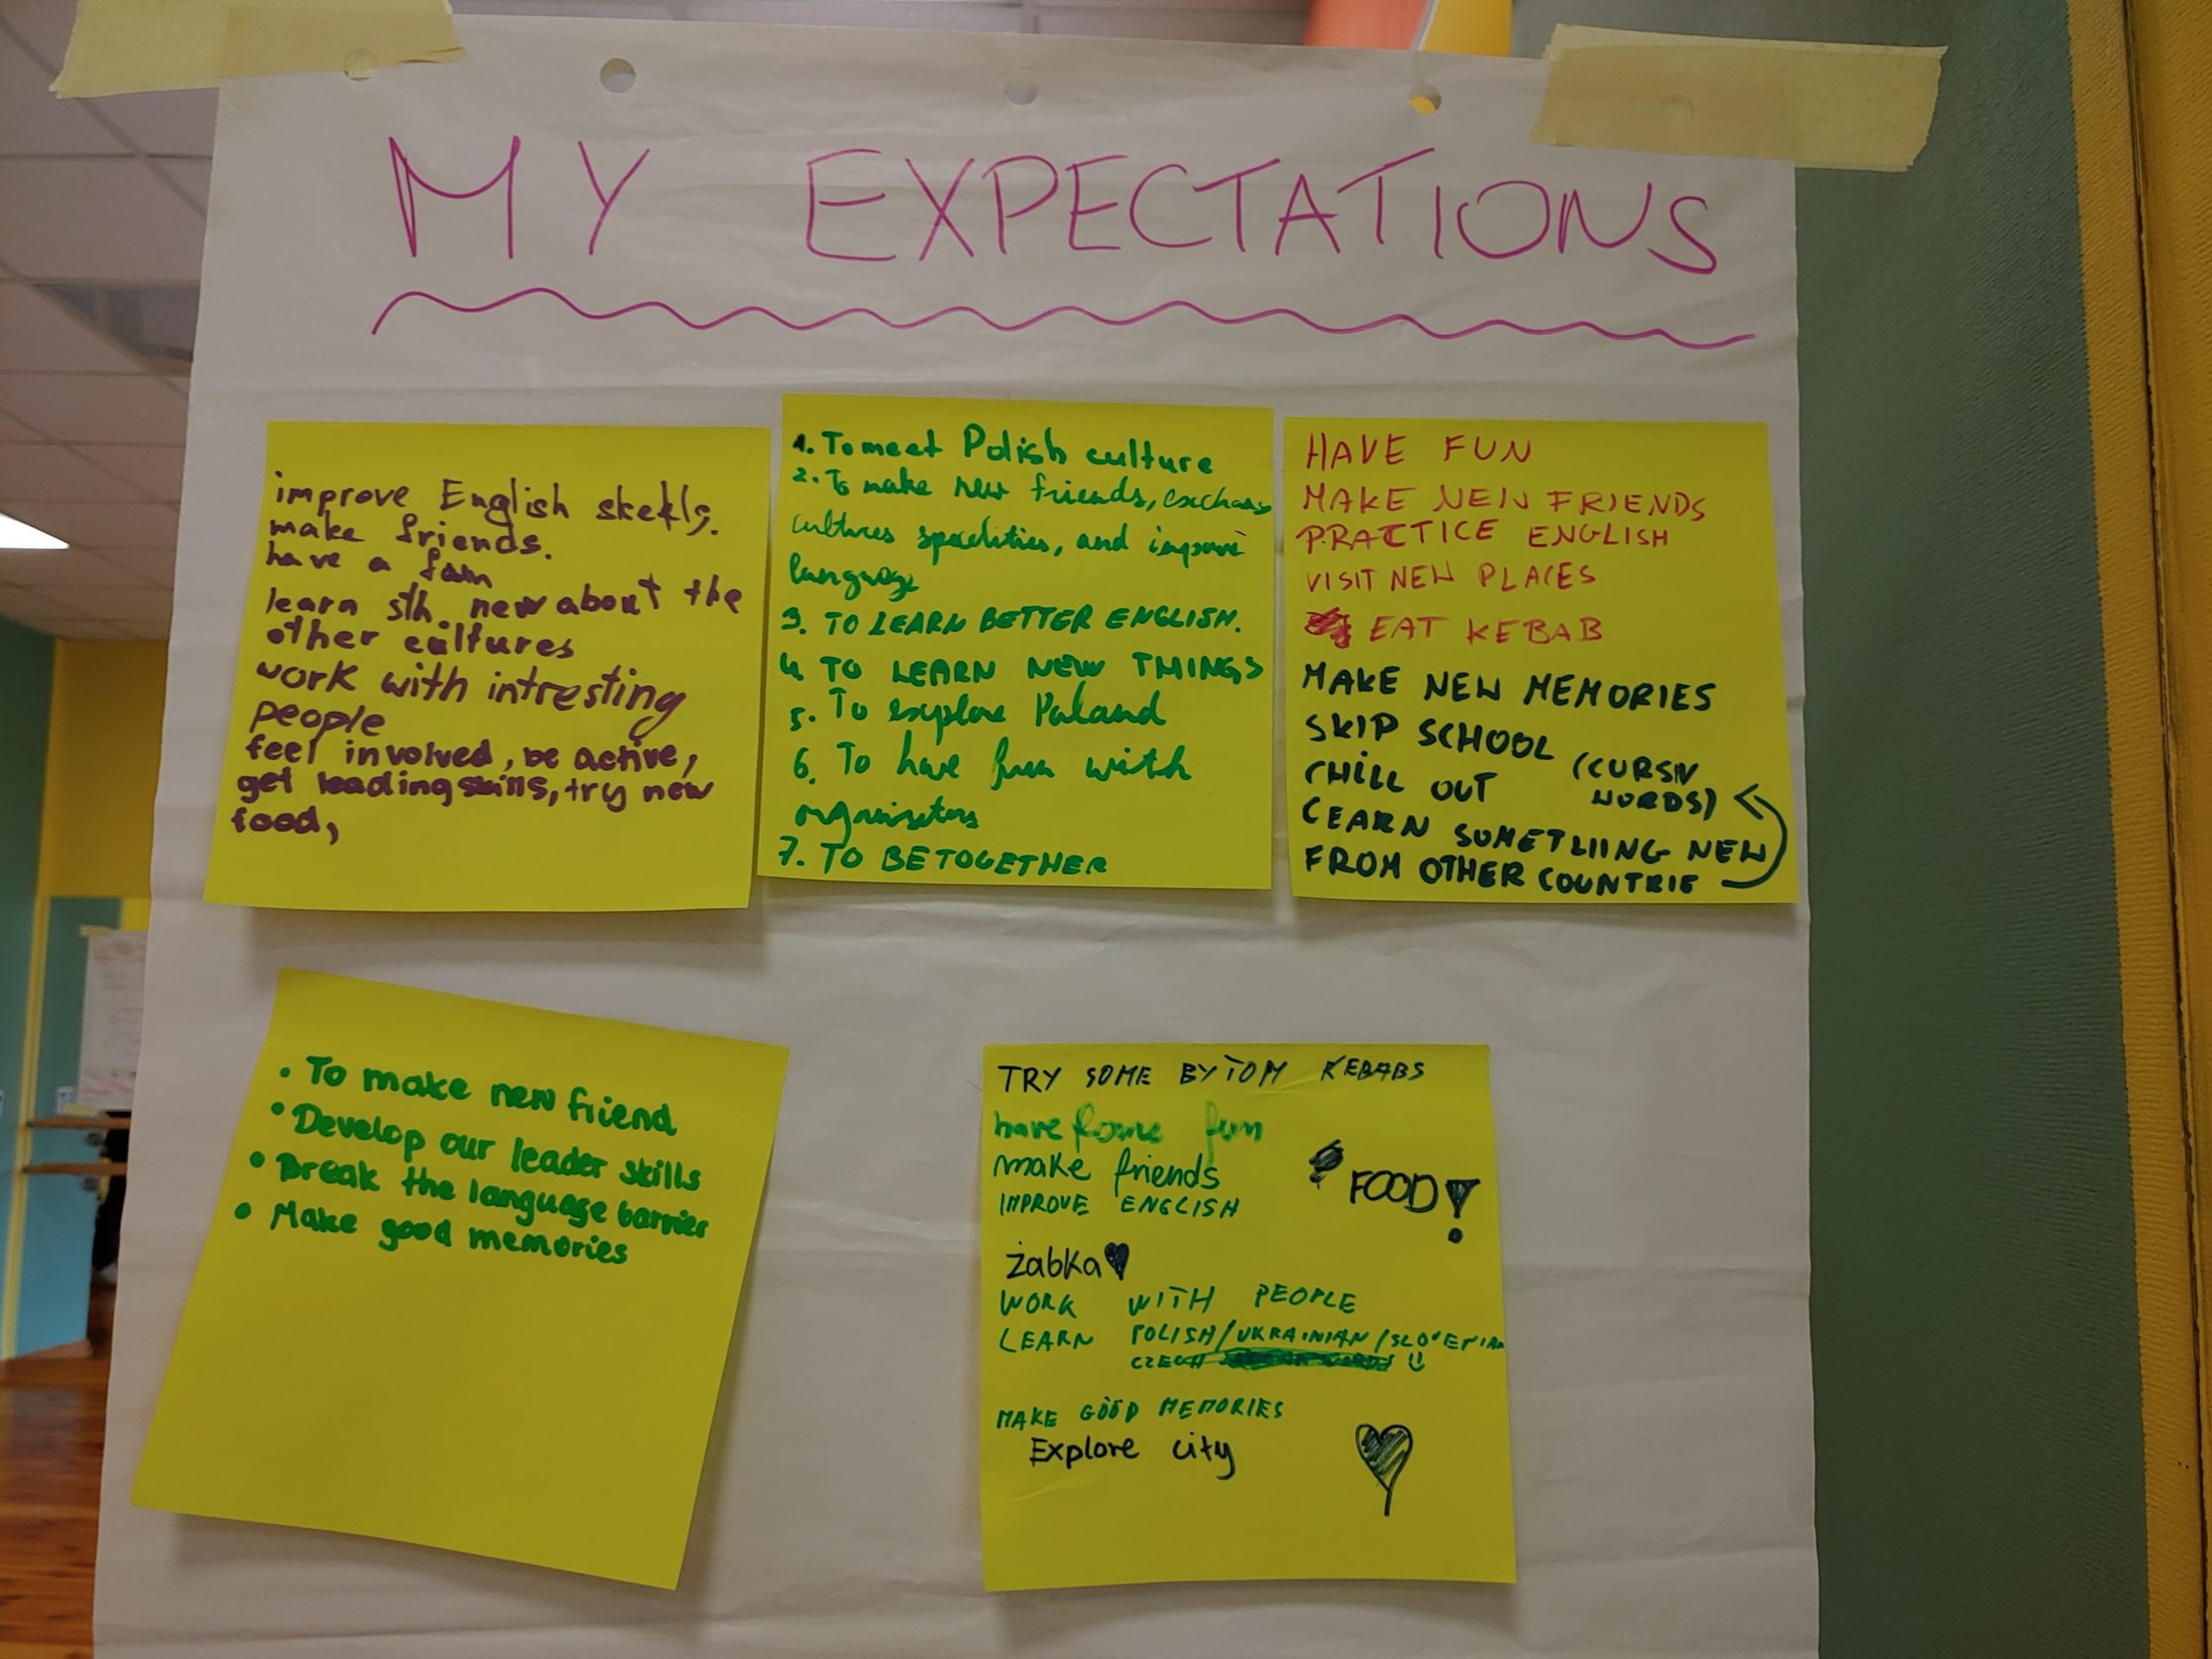 MY EXPECTATIONS
improve English skekls.
make friends.
have a fun
learn sth. new about the
other cultures
work with intresting
people
feel involved, be active,
get leading skills, try new
food,
1. To meet Polish culture
2. To make new friends, exchang
cultures specilities, and improve
language
3. TO LEARN BETTER ENGLISH.
4. TO LEARN NEW THINGS
5. To explore Poland
6. To have fun with
organisators
7. TO BE TOGETHER
HAVE FUN
MAKE NEW FRIENDS
PRACTICE ENGLISH
VISIT NEW PLACES
EAT KEBAB
MAKE NEW MEMORIES
SKIP SCHOOL
CHILL OUT
(CURSIN
WORDS)
LEARN SOMETHIING NEW
FROM OTHER COUNTRIE
• To make new friend
• Develop our leader skills
• Break the language barrier
• Make good memories
TRY SOME BYTOM KEBABS
have some fun
make friends
IMPROVE ENGLISH
FOOD!
żabka
WORK WITH PEOPLE
LEARN POLISH/UKRAINIAN/SLOVENIAN
CZECH
MAKE GOOD MEMORIES
Explore city